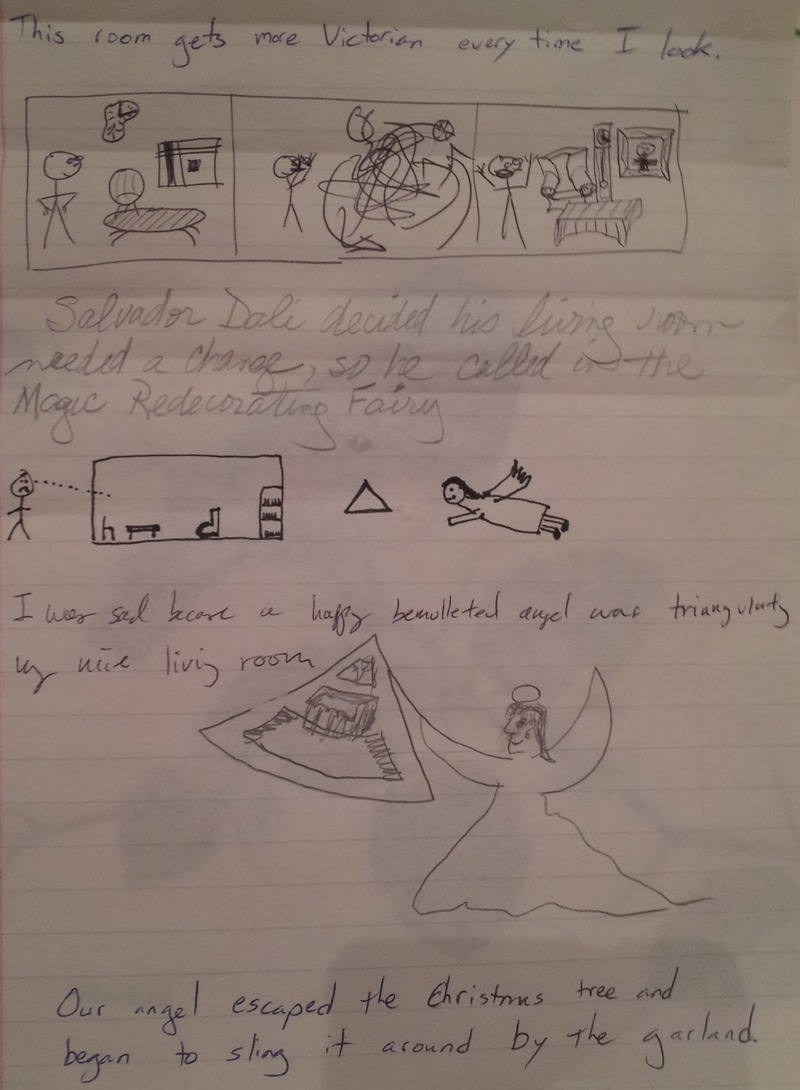 This room gets more Victorian every time I look.
Salvador Dali decided his living room
needed a change, so he called in the
Magic Redecorating Fairy
I was sad because a happy bemulleted angel was triangulating
my nice living room
Our angel escaped the Christmas tree and
began to sling it around by the garland.